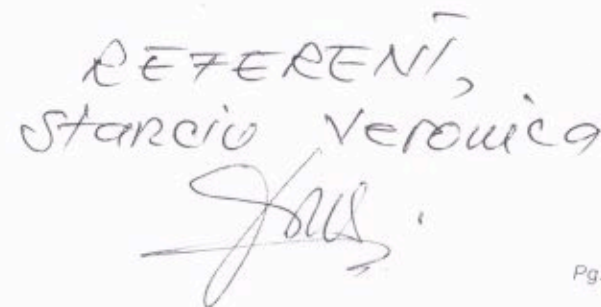 REFERENT,
Stanciu Veronica
Pg.